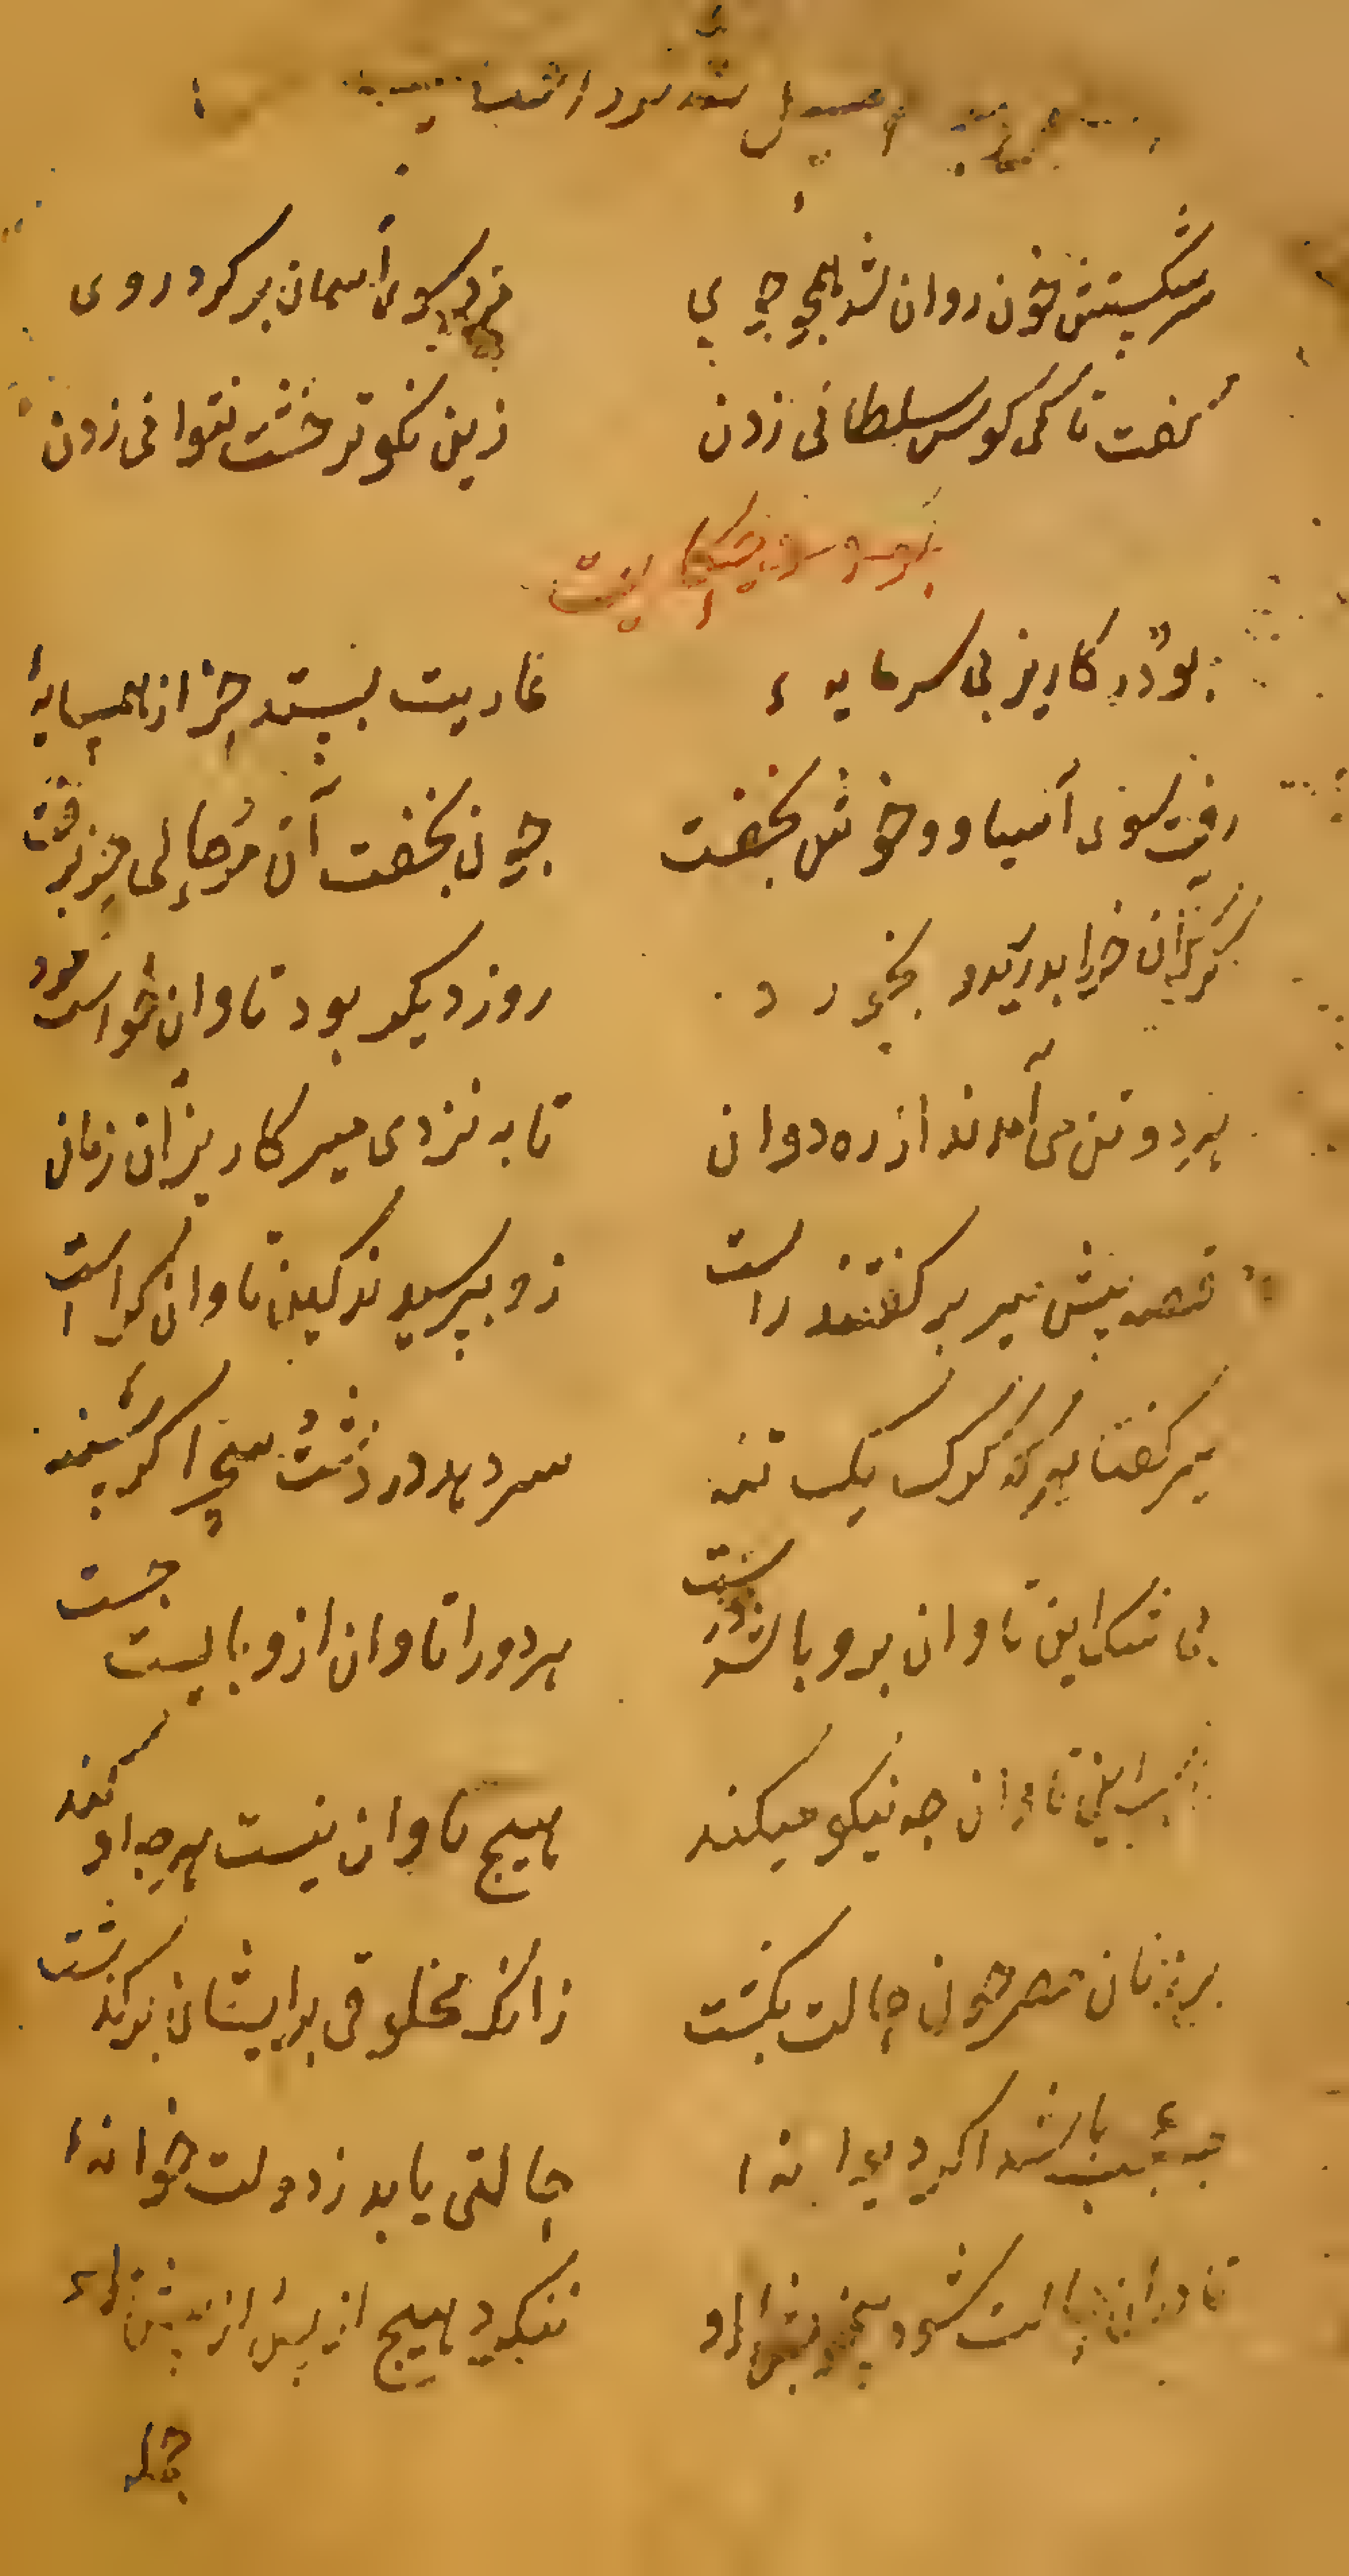 سرشکستش خون روان شد همچو جوی مرد سوی آسمان بر کرد روی
گفت تا کی کوس سلطانی زدن زین نکوتر خشت نتوانی زدن
حکایت
بود در کاریز بی سرمایهٔ عاریت بستد خر از همسایهٔ
رفت سوی آسیا و خوش بخفت چون بخفت آن مرد حالی خر برفت
گرگ آن خر را بدرید و بخورد روز دیگر بود تاوان خواست مرد
هر دو تن می آمدند از ره دوان تا به نزد میر کاریز آن زمان
قصه پیش میر بر گفتند راست زو بپرسیدند کین تاوان کراست
میر گفتا هر که گرگ یک تنه سر دهد در دشت صحرا گرسنه
بی شک این تاوان برو باشد درست هر دو را تاوان ازو بایست جست
یا رب این تاوان چه نیکو میکند هیچ تاوان نیست هرچه او کند
بر زنان مصر چون حالت بگشت زانکه مخلوقی بر ایشان برگذشت
چه عجب باشد اگر دیوانهٔ حالتی یابد ز دولت خوانهٔ
تا در آن حالت شود بیخویش او ننگرد هیچ از پس و از پیش او
جمله